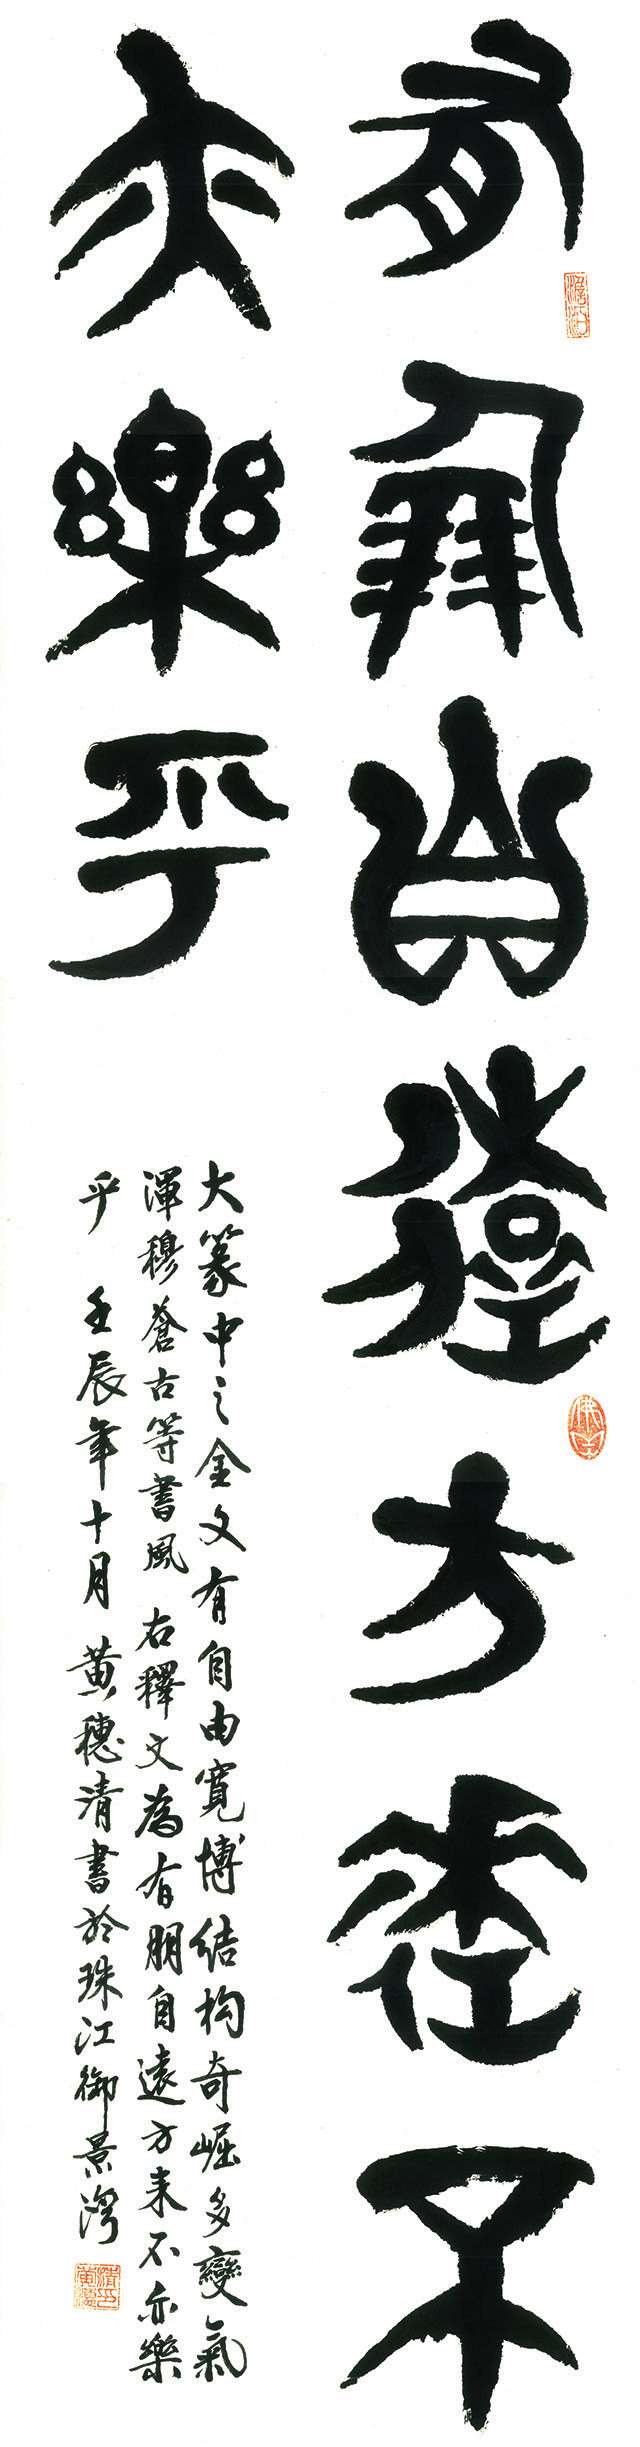 有朋自遠方來不
亦樂乎
大篆中之金文有自由寬博結构奇崛多變氣
渾穆蒼古等書風 右釋文為有朋自遠方来不亦樂
乎 壬辰年十月 黄穗清書於珠江御景灣